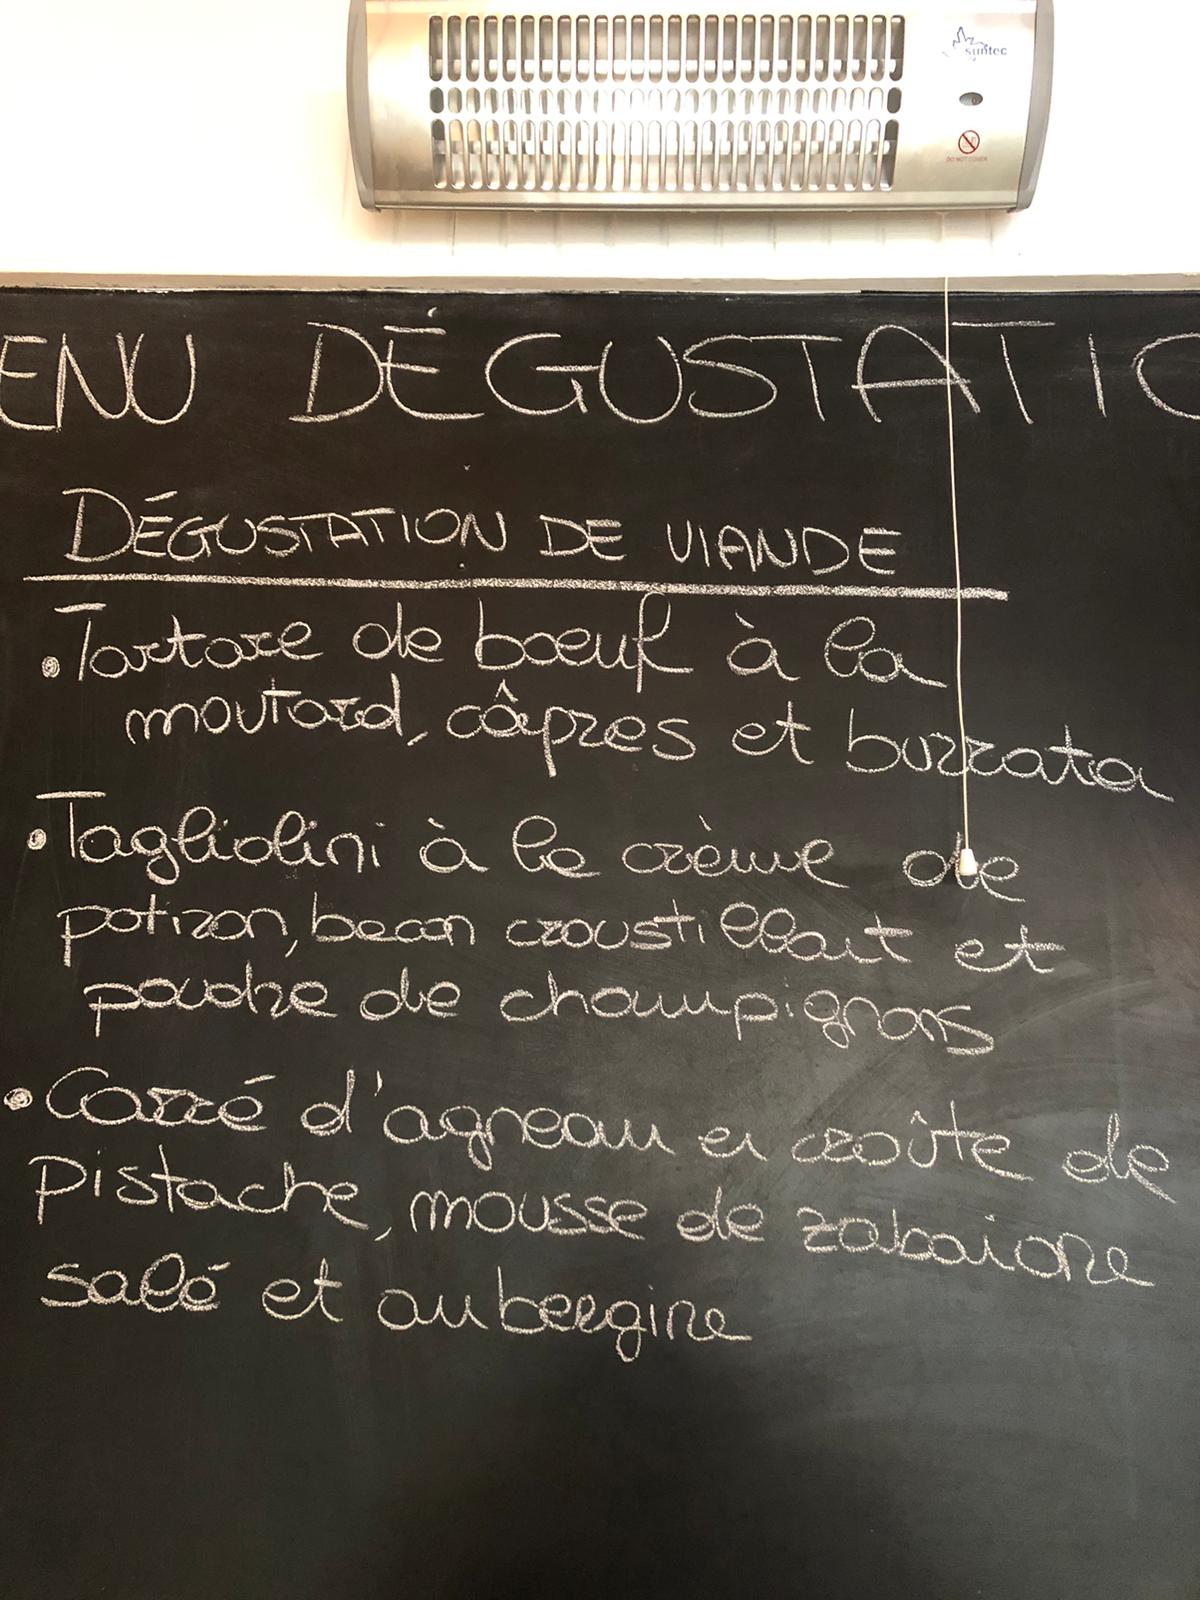 suntec
DO NOT COVER
ENU DÉGUSTATIO
DÉGUSTATION DE VIANDE
• Tartare de bœuf à la
moutard, câpres et burrata
• Tagliolini à la crème de
potiron, becon croustillant et
poudre de champignons
• Carré d'agneau en croûte de
pistache, mousse de zabaione
salé et aubergine